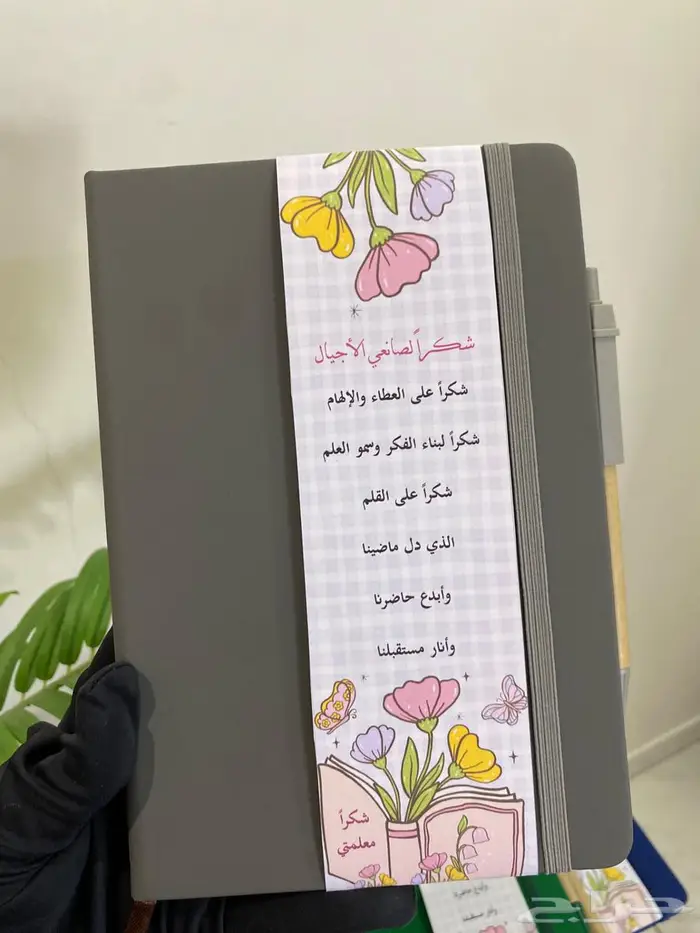 شكراً لصانعي الأجيال
شكراً على العطاء والإلهام
شكراً لبناء الفكر وسمو العلم
شكراً على القلم
الذي دل ماضينا
وأبدع حاضرنا
وأنار مستقبلنا
شكراً
معلمتي
وأبدع حاضرنا
وأنار مستقبلنا
حراج